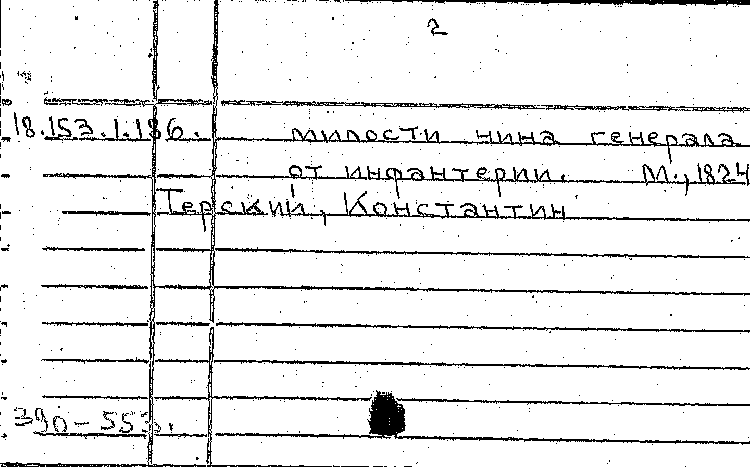 2
18.153.1.186. милости чина генерала
от инфантерии. М., 1824
Терский, Константин
390-553.